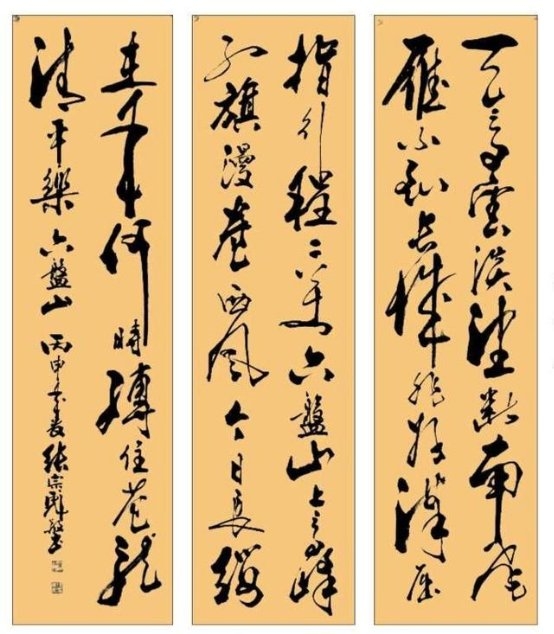 天高雲淡望斷南飛
雁不到長城非好漢屈
指行程二萬六盤山上高峰
紅旗漫卷西風今日長纓
在手何時縛住蒼龍
清平樂六盤山丙申